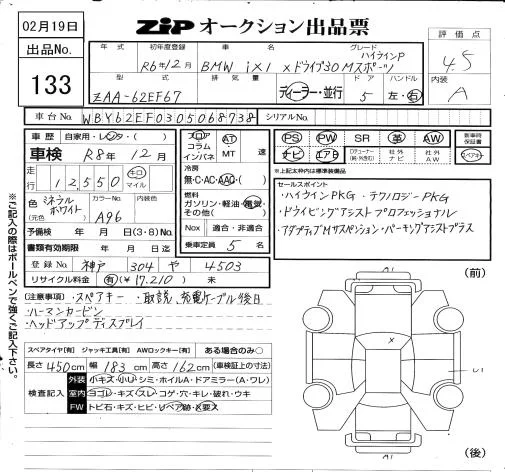 02月19日
出品No.
133
ZIP オークション出品票
評価点
4.5
内装
A
年式
初年度登録
車名
グレード
R6年12月
BMW iX1 xドライブ30 Mスポーツ
ハイラインP
型式
排気量
ドア
ハンドル
ZAA-62EF67
ディーラー・並行
5
左・右
車台No.
WBY62EF0305068738
シリアルNo.
車歴
自家用・レンタ・( )
車検
R8年 12月
走行
12,550
キロ
マイル
色
(元色)
ミネラルホワイト
カラーNo.
A96
内装色
予備検
年 月 日(3・8)No.
書類有効期限
年 月 日迄
登録No.
神戸 304 や 4503
リサイクル料金
有(¥17,210) 未
フロア
コラム
インパネ
AT
MT
速
冷房
無・C・AC・AAC・( )
燃料
ガソリン・軽油・電気・
その他( )
Nox
適合・非適合
乗車定員
5名
PS
PW
SR
革
AW
ナビ
エアB
社外
ナビ
社外
AW
新車時
保証書
スペアキー
※上記太枠内は標準装備品
セールスポイント
・ハイラインPKG ・テクノロジーPKG
・ドライビングアシスト プロフェッショナル
・アダプティブMサスペンション・パーキングアシストプラス
(注意事項)
・スペアキー ・取説、充電ケーブル後日
・ハーマンカードン
・ヘッドアップディスプレイ
スペアタイヤ[有] ジャッキ工具[有] AWロックキー[有] ある場合のみ○
長さ 450cm 幅 183cm 高さ 162cm (車検証上の寸法)
検査記入
外装
小キズ・小U・シミ・ホイルA・ドアミラー(A・ワレ)
室内
ヨゴレ・キズ・スレ・コゲ・穴・キレ・破れ・ウキ
FW
トビ石・キズ・ヒビ・リペア跡・X要入
※ご記入の際はボールペンで強くご記入下さい。
(前)
x
(後)